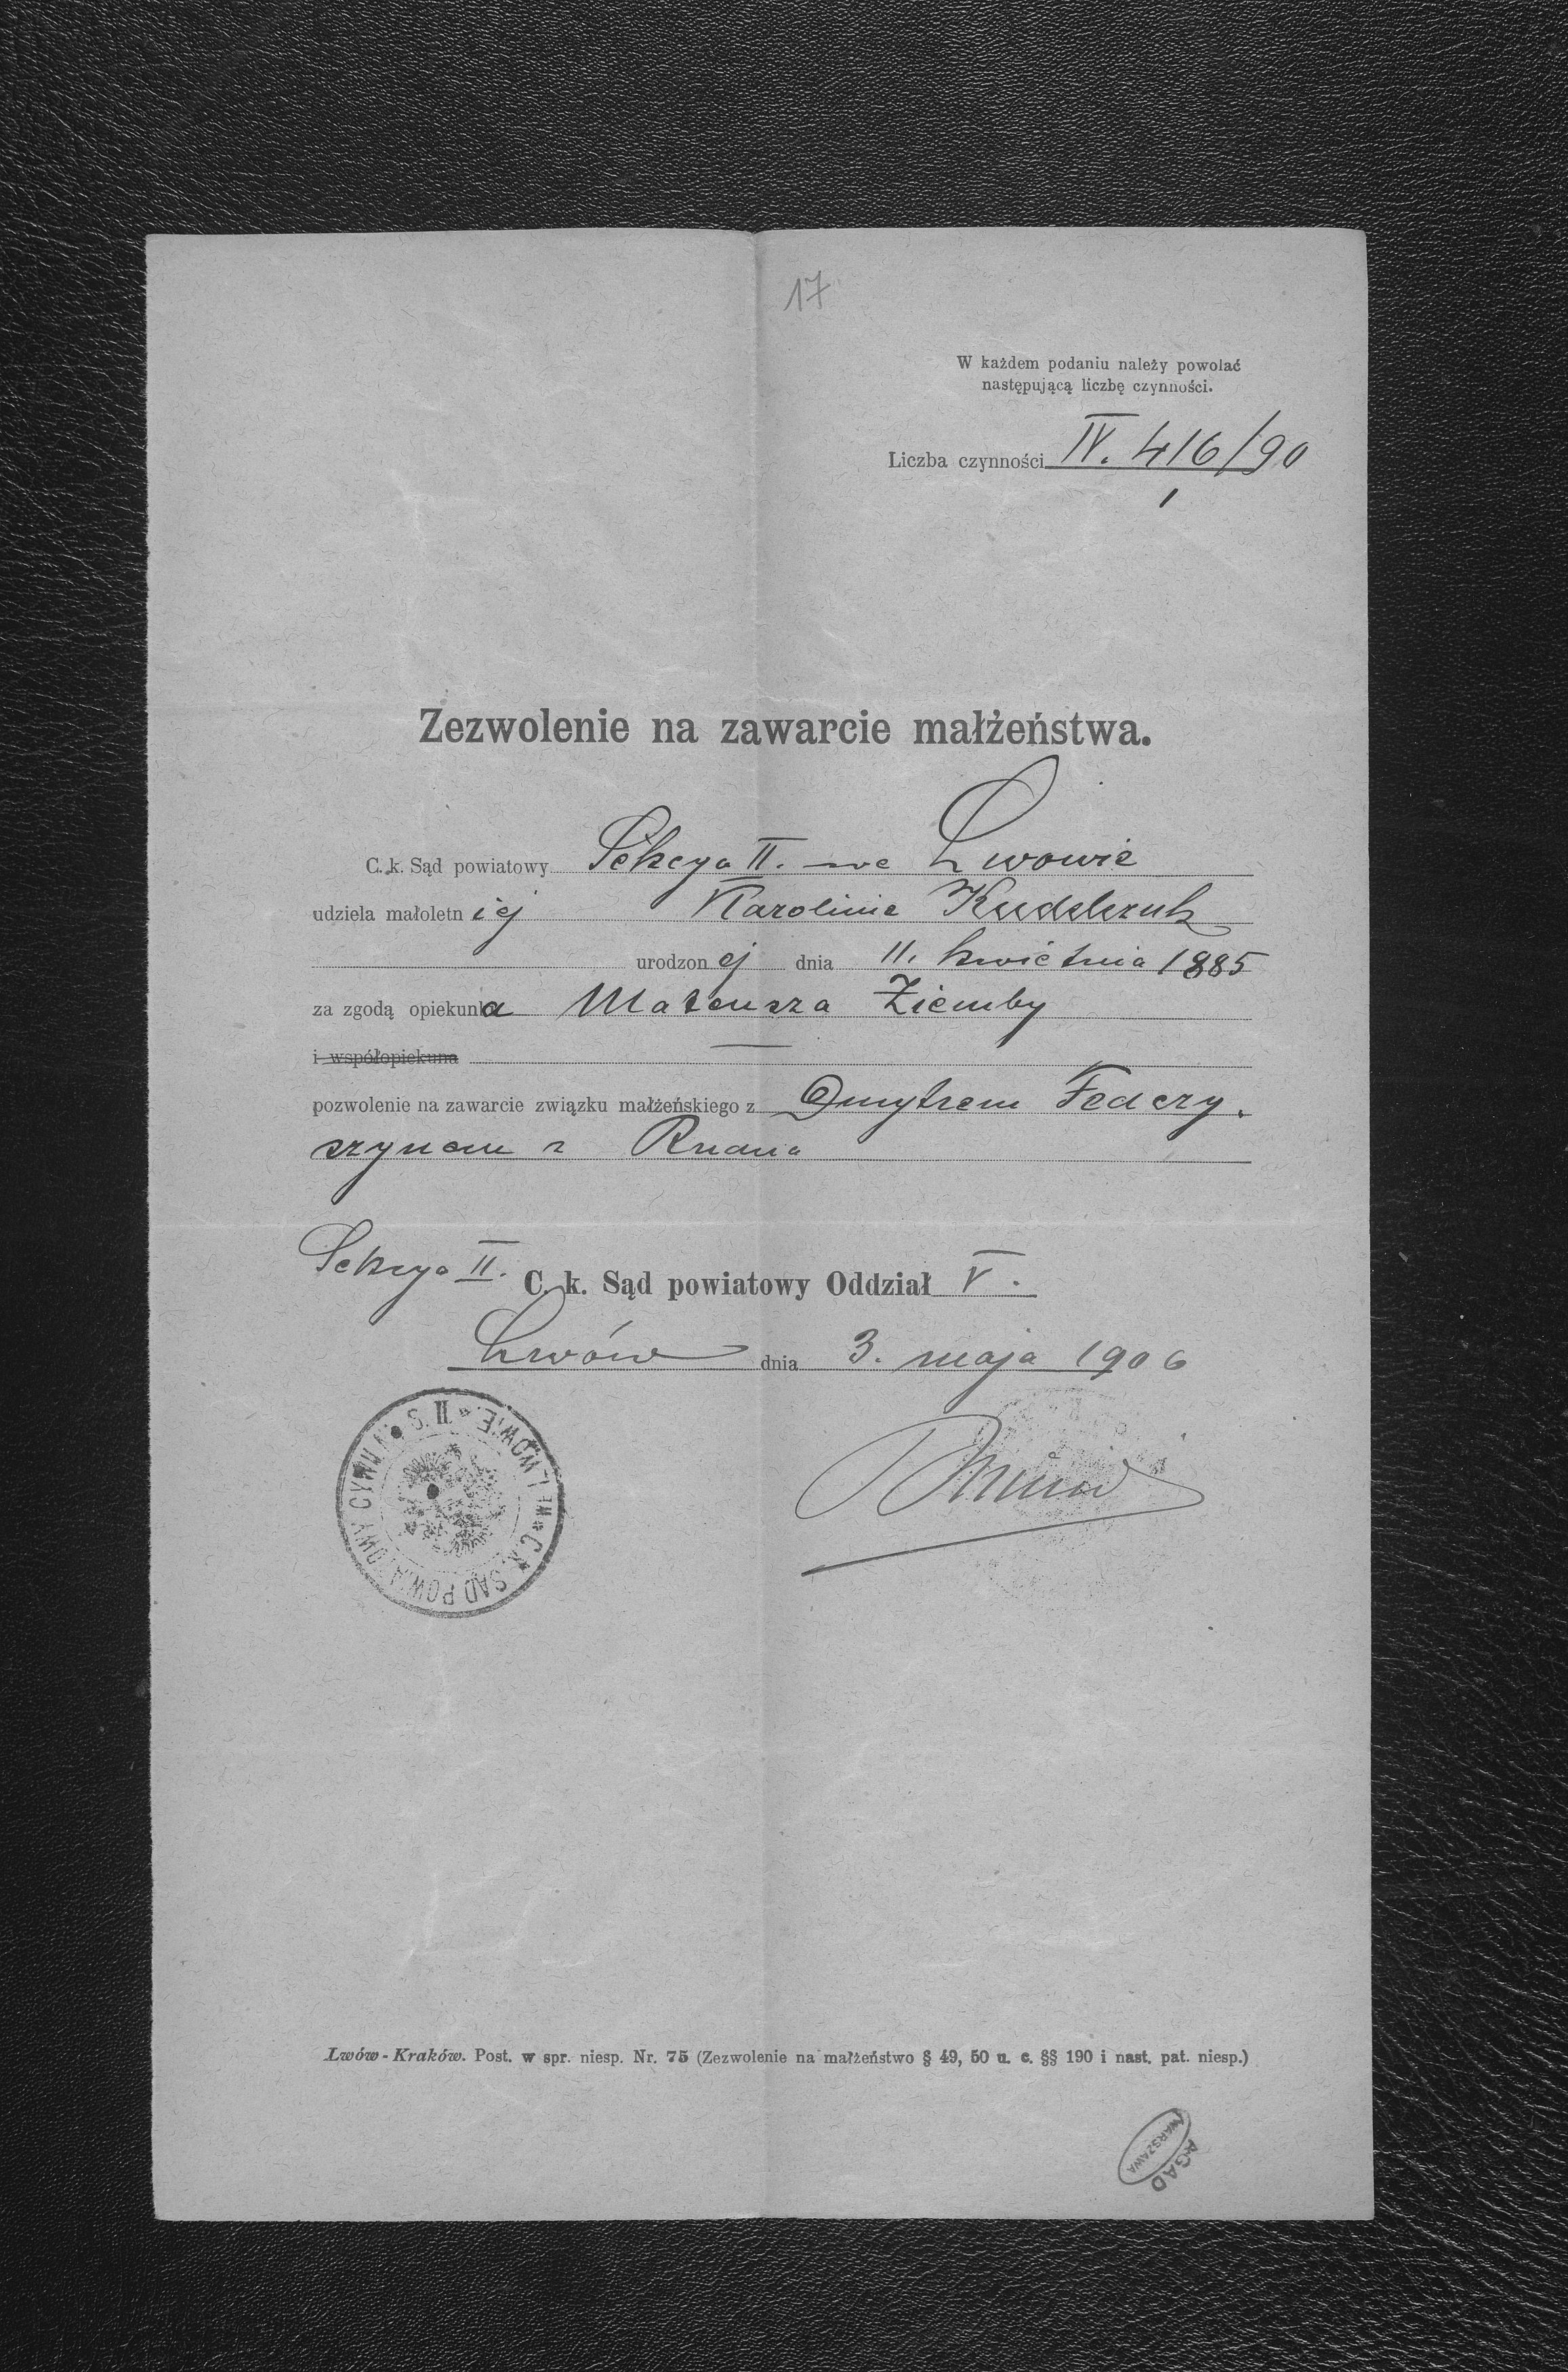 17
W każdem podaniu należy powołać
następującą liczbę czynności.
Liczba czynności IV. 416/90
1
Zezwolenie na zawarcie małżeństwa.
C. k. Sąd powiatowy Sekcya II. we Lwowie
udziela małoletn iej Karolinie
urodzon ej dnia 11. kwietnia 1885
za zgodą opiekuna Mateusza Ziemby
i współopiekuna —
pozwolenie na zawarcie związku małżeńskiego z Dmytrem Fedczy-
szynem z Rudna
Sekcya II. C. k. Sąd powiatowy Oddział V.
Lwów dnia 3. maja 1906
C.K. SĄD POWIATOWY CYWILN. S. II * WE LWOWIE *
Lwów - Kraków. Post. w spr. niesp. Nr. 75 (Zezwolenie na małżeństwo § 49, 50 u. c. §§ 190 i nast. pat. niesp.)
AGAD
WARSZAWA